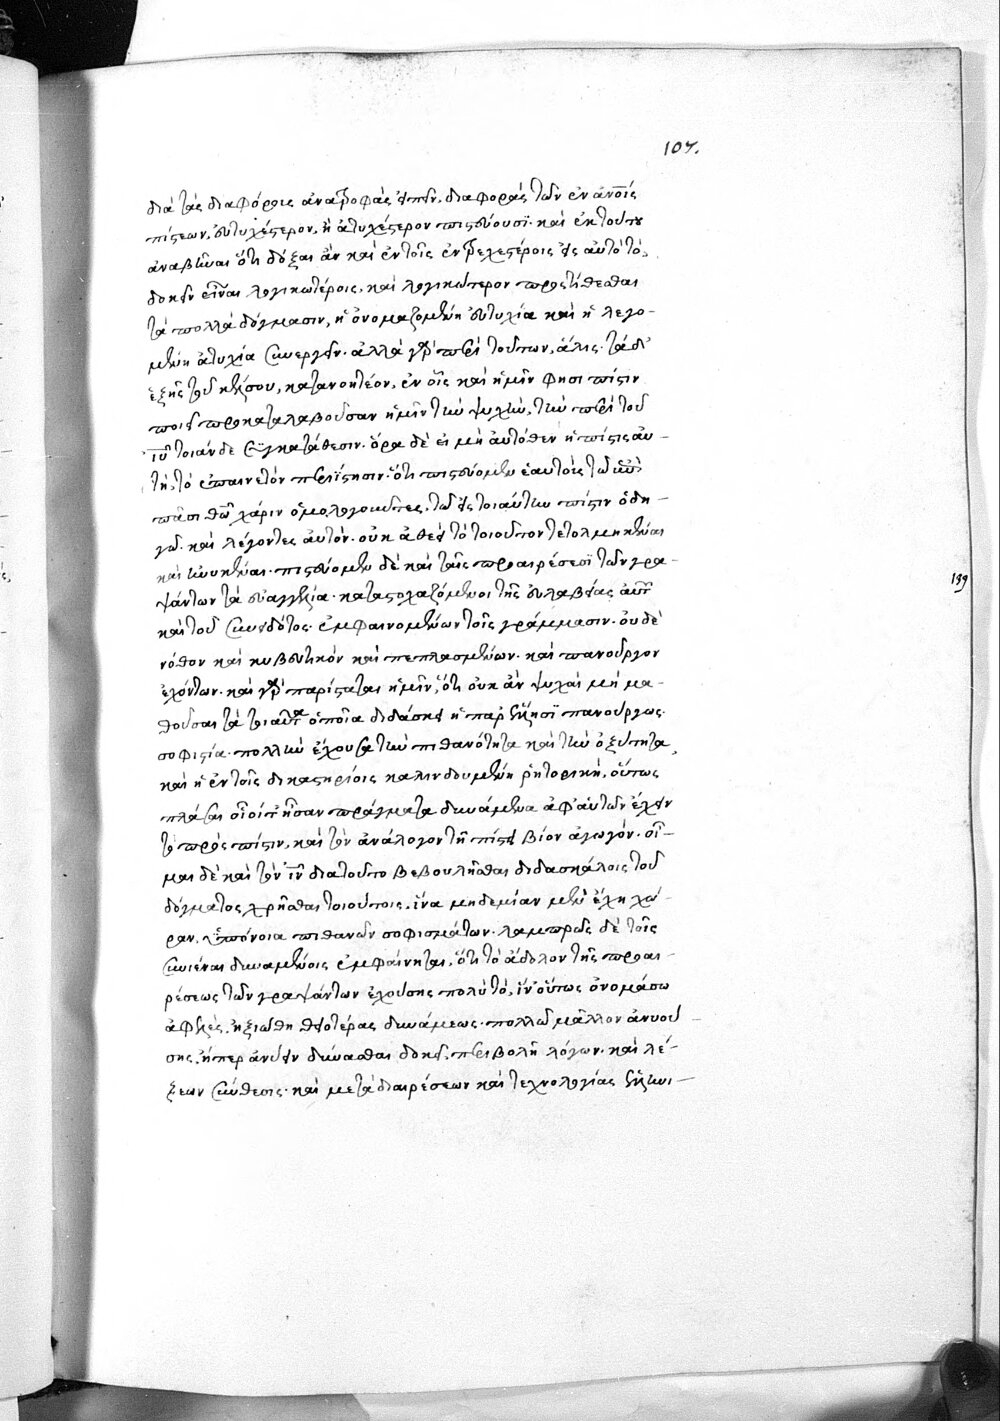 107.
διὰ τὰς διαφόρους ἀναστροφὰς εἰπεῖν, διαφορὰς τῶν ἐν ἀνοις
πίστεων, εὐτυχέστερον, ἢ ἀτυχέστερον πιστεύουσι· καὶ ἐκ τούτου
ἀναβῆναι ὅτι δόξαι ἂν καὶ ἐν τοῖς ἐντρεχεστέροις εἰς αὐτὸ τὸ,
δοκεῖν εἶναι λογικωτέροις, καὶ λογικώτερον προστίθεσθαι
τὰ πολλὰ δόγμασιν, ἡ ὀνομαζομένη εὐτυχία καὶ ἡ λεγο-
μένη ἀτυχία συνεργεῖν. ἀλλὰ γὰρ περὶ τούτων, ἅλις. τὰ δ'
ἑξῆς τοῦ κέλσου, κατανοητέον, ἐν οἷς καὶ ἡμῖν φησι πίστιν
ποιεῖ προκαταλαβοῦσαν ἡμῶν τὴν ψυχὴν, τὴν περὶ τοῦ
ἰῦ τοιάνδε συγκατάθεσιν. ὅρα δὲ εἰ μὴ αὐτόθεν ἡ πίστις αὕ-
τη, τὸ ἐπαινετὸν παρίστησιν. ὅτι πιστεύομεν ἑαυτοὺς τῷ ἐπὶ
πᾶσι θῶ χάριν ὁμολογοῦντες, τῷ εἰς τοιαύτην πίστιν ὁδη-
γῷ. καὶ λέγοντες αὐτὸν. οὐκ ἀθεεὶ τὸ τοιοῦτον τετολμηκέναι
καὶ ἠνυκέναι. πιστεύομεν δὲ καὶ ταῖς προαιρέσεσι τῶν γρα-
ψάντων τὰ εὐαγγέλια. καταστοχαζόμενοι τῆς εὐλαβείας αὐτῶν
καὶ τοῦ συνειδότος. ἐμφαινομένων τοῖς γράμμασιν. οὐδὲ
νόθον καὶ κυβευτικὸν καὶ πεπλασμένων. καὶ πανοῦργον
ἐχόντων. καὶ γὰρ παρίσταται ἡμῖν, ὅτι οὐκ ἂν ψυχαὶ μὴ μα-
θοῦσαι τὰ τοιαῦτα ὁποῖα διδάσκει ἡ παρ' ἕλλησι πανοῦργος.
σοφιστία. πολλὴν ἔχουσα τὴν πιθανότητα καὶ τὴν ὀξύτητα,
καὶ ἡ ἐν τοῖς δικαστηρίοις καλινδουμένη ῥητορικὴ, οὕτως
πλάσαι οἷοί τ' ἦσαν πράγματα δυνάμενα ἀφ' αὑτῶν ἔχειν
τὸ πρὸς πίστιν, καὶ τὸν ἀνάλογον τῇ πίστει βίον ἀγωγόν. οἶ-
μαι δὲ καὶ τὸν ἰῦν διὰ τοῦτο βεβουλῆσθαι διδασκάλοις τοῦ
δόγματος χρῆσθαι τοιούτοις, ἵνα μηδεμίαν μὲν ἔχῃ χώ-
ραν, ὑπόνοια πιθανῶν σοφισμάτων. λαμπρῶς δὲ τοῖς
συνιέναι δυναμένοις ἐμφαίνηται, ὅτι τὸ ἄδολον τῆς προαι-
ρέσεως τῶν γραψάντων ἐχούσης πολὺ τὸ, ἵν' οὕτως ὀνομάσω
ἀφελὲς, ἠξιώθη θειοτέρας δυνάμεως. πολλῷ μᾶλλον ἀνυού-
σης, ἤπερ ἀνύειν δύνασθαι δοκεῖ, περιβολὴ λόγων. καὶ λέ-
ξεων σύνθεσις. καὶ μετὰ διαιρέσεων καὶ τεχνολογίας ἑλληνι-
199